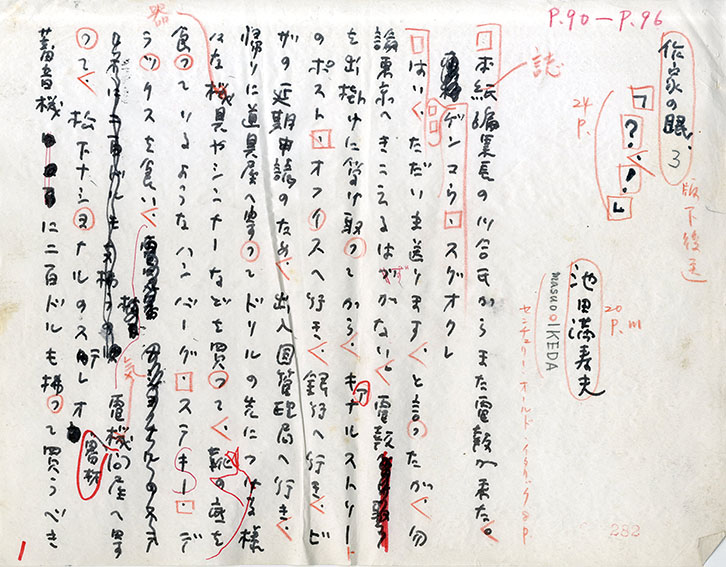 P.90—P.96
作家の眼 3
版下後送
24 P.
「?!」
池田満寿夫
masuo IKEDA
20 P.
センチュリー・オールド・イタリック 8P.
誌
本紙編集長の川合氏からまた電報が来た。
ゲンコウ・スグオクレ
はい、ただいま送ります、と言ったが、勿
論東京へきこえるはずがない、電報
を出掛けに受け取ってから、キァナルストリート
のポスト・オフィスへ行き、銀行へ行き、ビ
ザの延期申請のため、出入国管理局へ行き、
帰りに道具屋へ寄ってドリルの先につける様
器
々な機具やシンナーなどを買って、靴の底を
食っているようなハンバーグ・ステーキ・デ
ラックスを食い、
気
電機問屋へ寄
って、松下ナショナルのステレオ
蓄音機 に二百ドルも払って買うべき
232
1